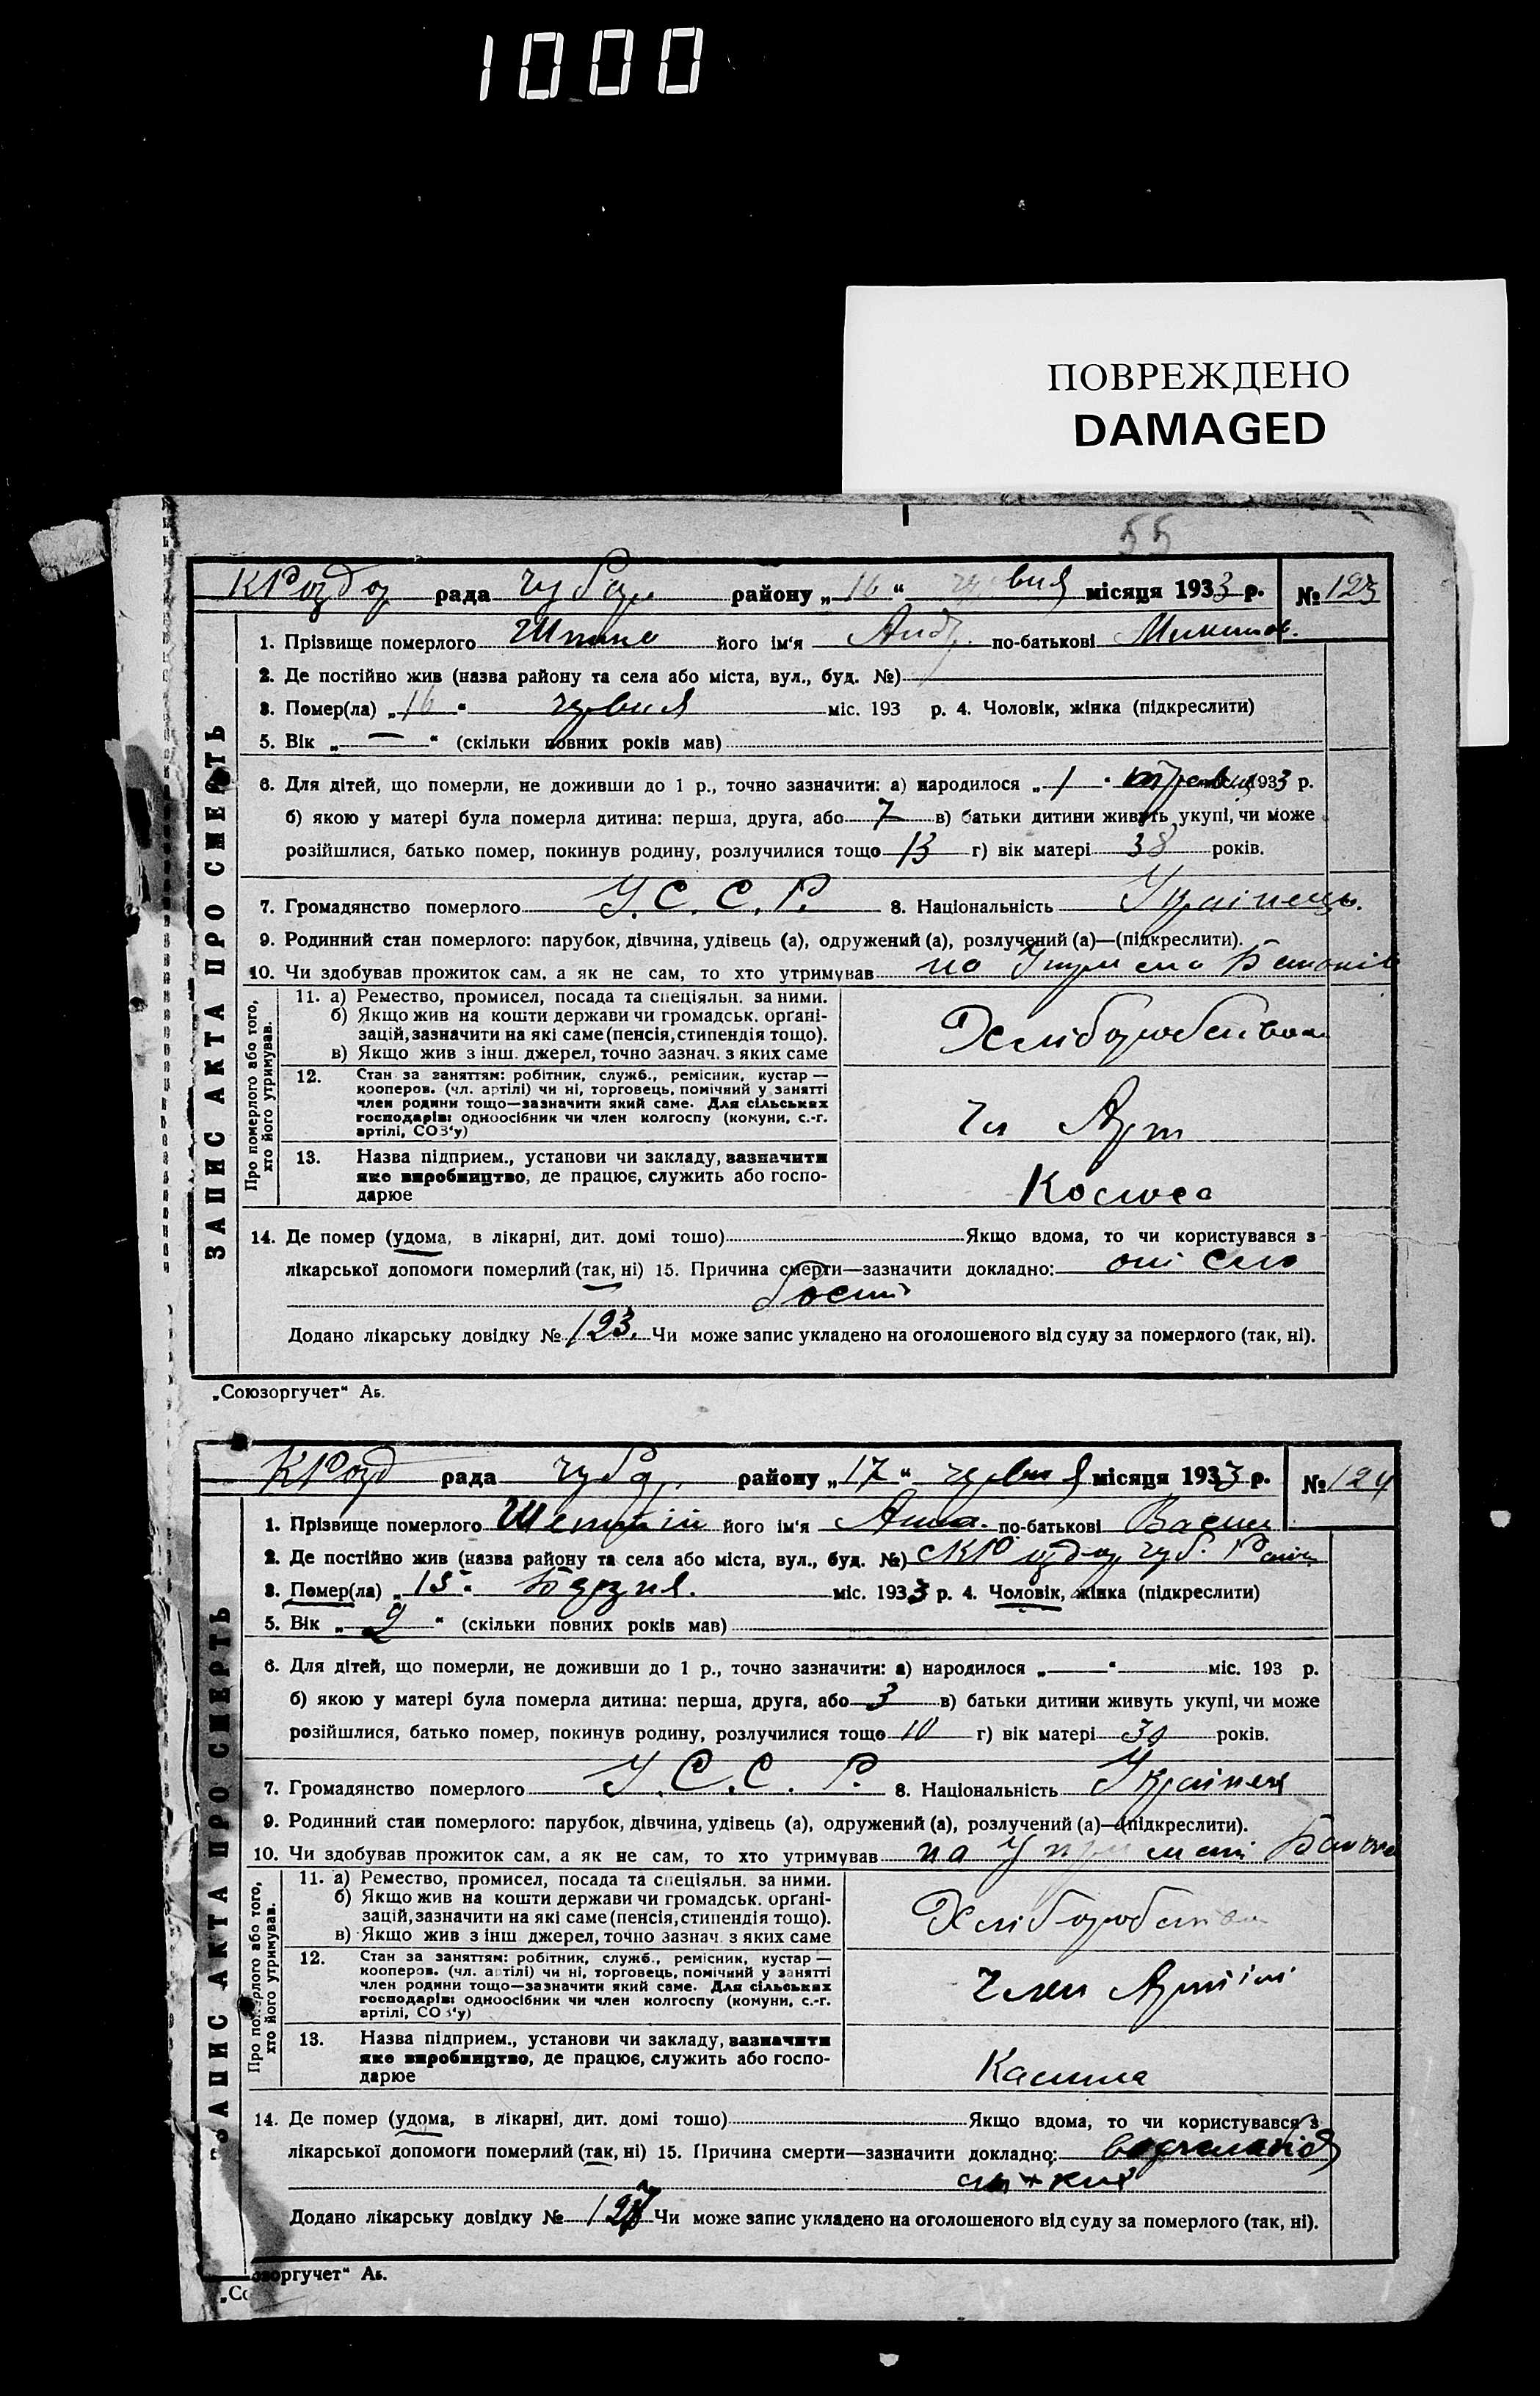 1000
ПОВРЕЖДЕНО
DAMAGED
55
рада Чубар району „16“ червня місяця 1933 р. № 123
ЗАПИС АКТА ПРО СМЕРТЬ
1. Прізвище померлого його ім'я Андр. по-батькові
2. Де постійно жив (назва району та села або міста, вул., буд. №)
3. Помер(ла) „16“ червня міс. 193 р. 4. Чоловік, жінка (підкреслити)
5. Вік „—“ (скільки повних років мав)
6. Для дітей, що померли, не доживши до 1 р., точно зазначити: а) народилося „1“ 1933 р.
б) якою у матері була померла дитина: перша, друга, або 7 в) батьки дитини живуть укупі, чи може
розійшлися, батько помер, покинув родину, розлучилися тощо 13 г) вік матері 38 років.
7. Громадянство померлого У.С.С.Р. 8. Національність Українець.
9. Родинний стан померлого: парубок, дівчина, удівець (а), одружений (а), розлучений (а)—(підкреслити).
10. Чи здобував прожиток сам, а як не сам, то хто утримував на
Про померлого або того, хто його утримував.
11. а) Ремество, промисел, посада та спеціяльн. за ними.
б) Якщо жив на кошти держави чи громадськ. орґані-
зацій, зазначити на які саме (пенсія, стипендія тощо).
в) Якщо жив з інш. джерел, точно зазнач. з яких саме
12. Стан за заняттям: робітник, служб., ремісник, кустар —
кооперов. (чл. артілі) чи ні, торговець, помічний у занятті
член родини тощо—зазначити який саме. Для сільських
господарів: одноосібник чи член колгоспу (комуни, с.-г.
артілі, СОЗ'у)
Чл Арт
13. Назва підприєм., установи чи закладу, зазначити
яке виробництво, де працює, служить або госпо-
дарює
14. Де помер (удома, в лікарні, дит. домі тощо) Якщо вдома, то чи користувався з
лікарської допомоги померлий (так, ні) 15. Причина смерти—зазначити докладно:
Додано лікарську довідку № 123. Чи може запис укладено на оголошеного від суду за померлого (так, ні).
„Союзоргучет“ Аб.
рада Чубар району „17“ червня місяця 1933 р. № 124
ЗАПИС АКТА ПРО СМЕРТЬ
1. Прізвище померлого його ім'я Анна. по-батькові Васил
2. Де постійно жив (назва району та села або міста, вул., буд. №)
3. Помер(ла) „15“ міс. 1933 р. 4. Чоловік, жінка (підкреслити)
5. Вік „2“ (скільки повних років мав)
6. Для дітей, що померли, не доживши до 1 р., точно зазначити: а) народилося „—“ міс. 193 р.
б) якою у матері була померла дитина: перша, друга, або 3 в) батьки дитини живуть укупі, чи може
розійшлися, батько помер, покинув родину, розлучилися тощо 10 г) вік матері 30 років.
7. Громадянство померлого У.С.С.Р. 8. Національність
9. Родинний стан померлого: парубок, дівчина, удівець (а), одружений (а), розлучений (а)—(підкреслити).
10. Чи здобував прожиток сам, а як не сам, то хто утримував на
Про померлого або того, хто його утримував.
11. а) Ремество, промисел, посада та спеціяльн. за ними.
б) Якщо жив на кошти держави чи громадськ. орґані-
зацій, зазначити на які саме (пенсія, стипендія тощо).
в) Якщо жив з інш. джерел, точно зазнач. з яких саме
12. Стан за заняттям: робітник, служб., ремісник, кустар —
кооперов. (чл. артілі) чи ні, торговець, помічний у занятті
член родини тощо—зазначити який саме. Для сільських
господарів: одноосібник чи член колгоспу (комуни, с.-г.
артілі, СОЗ'у)
Член Артілі
13. Назва підприєм., установи чи закладу, зазначити
яке виробництво, де працює, служить або госпо-
дарює
14. Де помер (удома, в лікарні, дит. домі тощо) Якщо вдома, то чи користувався з
лікарської допомоги померлий (так, ні) 15. Причина смерти—зазначити докладно:
Додано лікарську довідку № Чи може запис укладено на оголошеного від суду за померлого (так, ні).
озоргучет“ Аб.
„Со